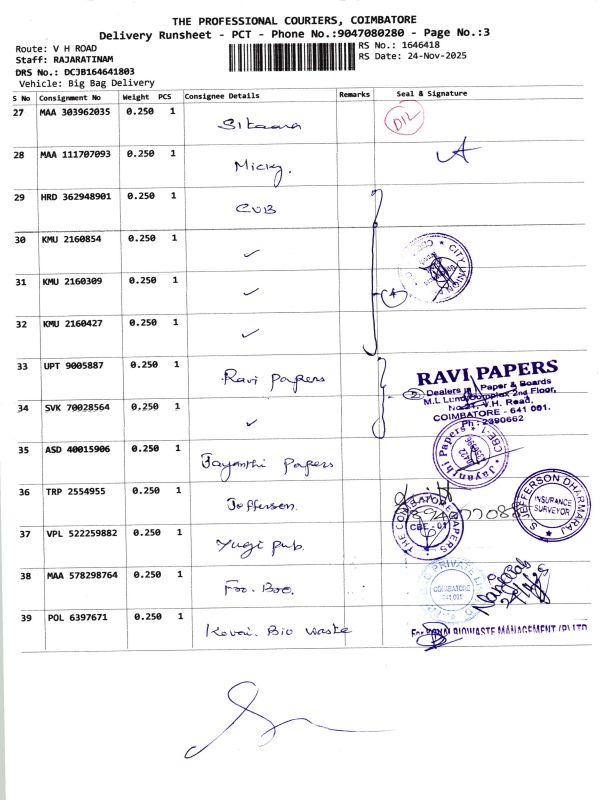 THE PROFESSIONAL COURIERS, COIMBATORE
Delivery Runsheet - PCT - Phone No.:9047080280 - Page No.:3
Route: V H ROAD
Staff: RAJARATINAM
DRS No.: DCJB164641803
Vehicle: Big Bag Delivery
RS No.: 1646418
RS Date: 24-Nov-2025
S No Consignment No Weight PCS Consignee Details Remarks Seal & Signature
27 MAA 303962035 0.250 1 D12
28 MAA 111707093 0.250 1 Micky.
29 HRD 362948901 0.250 1 CUB
30 KMU 2160854 0.250 1 ✓
31 KMU 2160309 0.250 1 ✓ 4
32 KMU 2160427 0.250 1 ✓
CITY UNION
33 UPT 9005887 0.250 1 Ravi papers
34 SVK 70028564 0.250 1 ✓ 2
RAVI PAPERS
Dealers in Paper & Boards
M.L Lund Complex 2nd Floor,
No:21, V.H. Road,
COIMBATORE - 641 001.
Ph : 2390662
35 ASD 40015906 0.250 1 Jayanthi papers
Jayanthi Papers * CBE-1 *
36 TRP 2554955 0.250 1 Jefferson.
S. JEFFERSON DHARMARAJ
INSURANCE
SURVEYOR
37 VPL 522259882 0.250 1 Yugi pub.
THE COIMBATORE PAPERS
CBE - 01
38 MAA 578298764 0.250 1 Foo. Boo.
PRIVATE
COIMBATORE
641 001
39 POL 6397671 0.250 1 Kovai. Bio waste
For KOVAI BIOWASTE MANAGEMENT (P) LTD